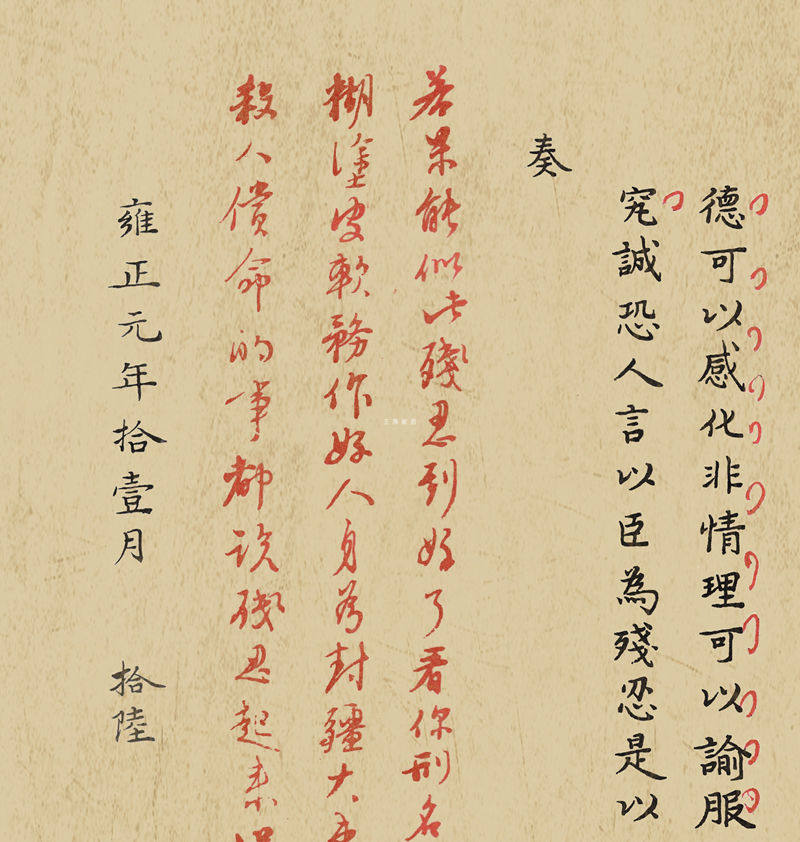 德可以感化非情理可以諭服
究誠恐人言以臣為殘忍是以
奏
若果能似此殘忍到好了看你刑名
糊塗皮軟務作好人身為封疆大
殺人償命的事都說殘忍起来
雍正元年拾壹月 拾陸